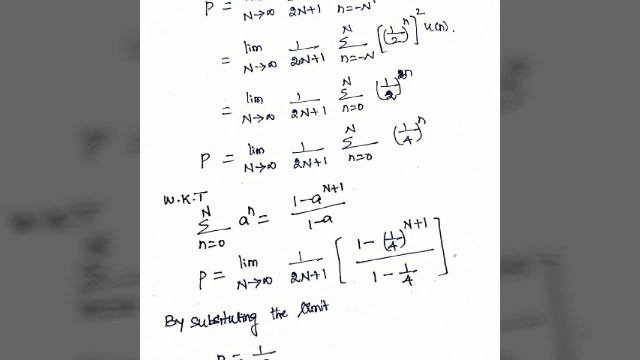 P = lim N→∞ 1/2N+1 Σ n=-N
= lim N→∞ 1/2N+1 Σ N n=-N [(1/2)^n]^2 u(n).
= lim N→∞ 1/2N+1 Σ N n=0 (1/2)^2n
P = lim N→∞ 1/2N+1 Σ N n=0 (1/4)^n
W.K.T
Σ N n=0 a^n = 1-a^N+1 / 1-a
P = lim N→∞ 1/2N+1 [ 1-(1/4)^N+1 / 1-1/4 ]
By substituting the limit